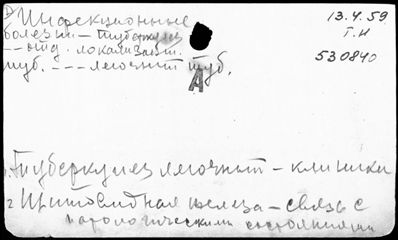 1) Инфекционные
болезни — туберкулез
— отд. локализац.
туб. — — легочный туб.
13.4.59
Г.Н
530840
А
1. Туберкулез легочный — клиника
2 Щитовидная железа — связь с
патологическими состояниями